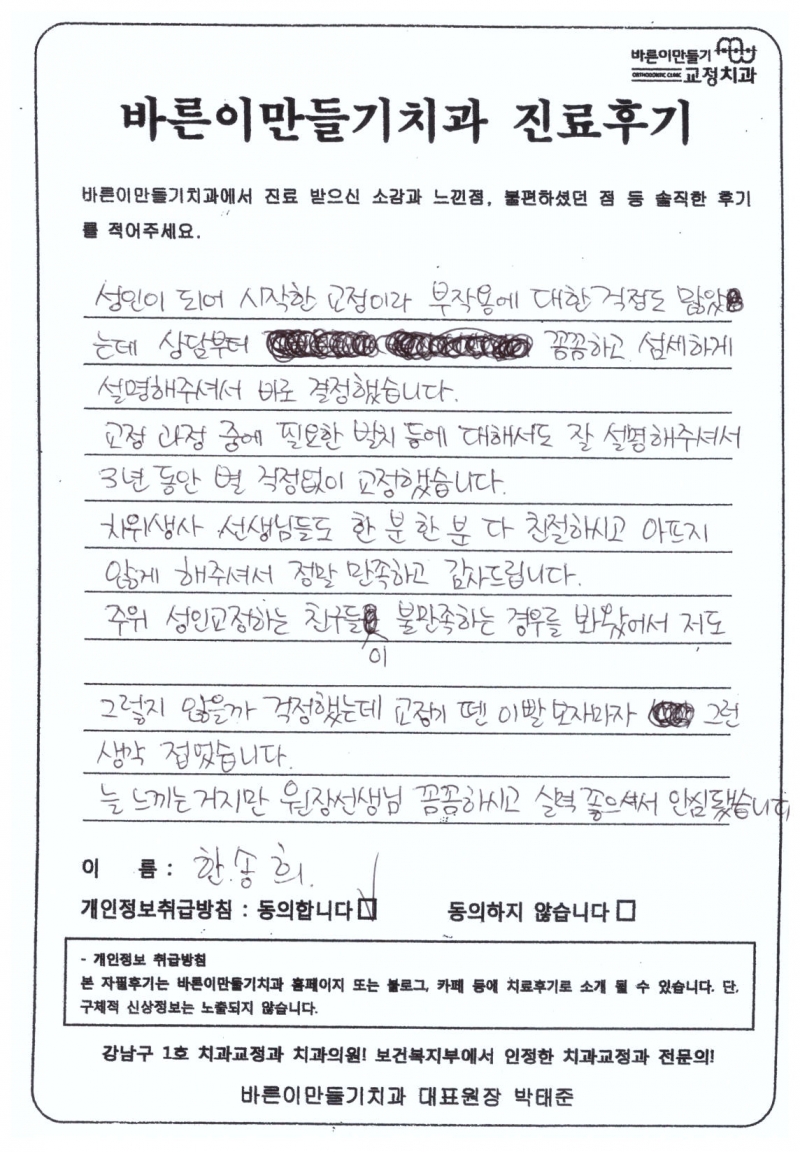 바른이만들기
ORTHODONTIC CLINIC 교정치과
바른이만들기치과 진료후기
바른이만들기치과에서 진료 받으신 소감과 느낀점, 불편하셨던 점 등 솔직한 후기
를 적어주세요.
성인이 되어 시작한 교정이라 부작용에 대한 걱정도 많았
는데 상담부터 꼼꼼하고 섬세하게
설명해주셔서 바로 결정했습니다.
교정 과정 중에 필요한 발치 등에 대해서도 잘 설명해주셔서
3년 동안 별 걱정없이 교정했습니다.
치위생사 선생님들도 한 분 한 분 다 친절하시고 아프지
않게 해주셔서 정말 만족하고 감사드립니다.
주위 성인교정하는 친구들 불만족하는 경우를 봐왔어서 저도
이
그렇지 않을까 걱정했는데 교정기 뗀 이빨 보자마자 그런
생각 접었습니다.
늘 느끼는거지만 원장선생님 꼼꼼하시고 실력 좋으셔서 안심됐습니다
이 름 : 한송희.
개인정보취급방침 : 동의합니다 동의하지 않습니다
- 개인정보 취급방침
본 자필후기는 바른이만들기치과 홈페이지 또는 블로그, 카페 등에 치료후기로 소개 될 수 있습니다. 단,
구체적 신상정보는 노출되지 않습니다.
강남구 1호 치과교정과 치과의원! 보건복지부에서 인정한 치과교정과 전문의!
바른이만들기치과 대표원장 박태준